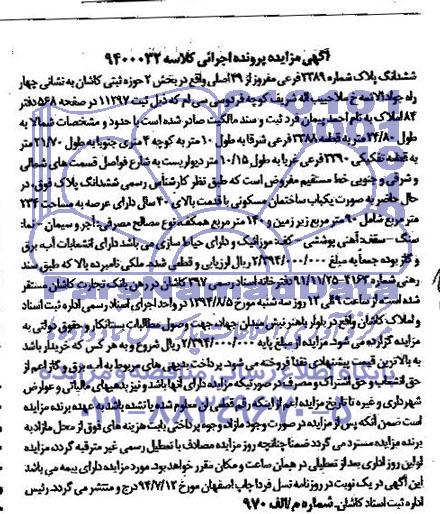 آگهی مزایده پرونده اجرائی کلاسه ۹۴۰۰۰۳۲
ششدانگ پلاک شماره ۳۳۸۹ فرعی مفروز از ۴۹ اصلی واقع در بخش ۲ حوزه ثبتی کاشان به نشانی چهار
راه جوادالائمه خ ملاحبیب اله شریف کوچه فردوسی سی ام که ذیل ثبت ۱۱۲۹۷ در صفحه ۵۶۸ دفتر
۸۴ املاک به نام احمد پیمان فرد ثبت و سند مالکیت صادر شده است با حدود و مشخصات شمالا به
طول ۲۴/۸۰ متر به قطعه ۳۳۸۸ فرعی شرقا به طول ۱۰ متر به کوچه ۴ متری جنوبا به طول ۲۱/۷۰ متر
به قطعه تفکیکی ۳۳۹۰ فرعی غربا به طول ۱۰/۱۵ متر دیواریست به شارع فواصل قسمت های شمالی
و شرقی و جنوبی خط مستقیم مفروض است که طبق نظر کارشناس رسمی ششدانگ پلاک فوق، در
حال حاضر به صورت یکباب ساختمان مسکونی با قدمت بالای ۴۰ سال دارای عرصه به مساحت ۲۳۴
متر مربع شامل ۹۰ متر مربع زیرزمین و ۱۴۰ متر مربع همکف، نوع مصالح مصرفی: آجر و سیمان - نما:
سنگ - سقف: آهنی پوششی - کف: موزائیک و دارای حیاط سازی می باشد دارای انشعابات آب، برق
و گاز بوده جمعا به مبلغ ۲/۹۴۰/۰۰۰/۰۰۰ ریال ارزیابی و قطعی شده. ملکی نامبرده بالا که طبق سند
رهنی شماره ۴۱۶۳-۹۱/۱۱/۲۵ دفترخانه اسناد رسمی ۳۹۷ کاشان در رهن بانک تجارت کاشان مستقر
شده است؛ از ساعت ۹ الی ۱۲ روز سه شنبه مورخ ۱۳۹۴/۸/۵ در واحد اجرای اسناد رسمی اداره ثبت اسناد
و املاک کاشان واقع در بلوار باهنر نبش میدان جهاد، جهت وصول مطالبات بستانکار و حقوق دولتی به
مزایده گزارده می شود. مزایده از مبلغ پایه ۲/۹۴۰/۰۰۰/۰۰۰ ریال شروع و به هر کس که خریدار باشد
به بالاترین قیمت پیشنهادی نقدا فروخته می شود. پرداخت بدهی های مربوط به آب، برق و گاز اعم از
حق انشعاب و حق اشتراک و مصرف در صورتیکه مزایده دارای آنها باشد و نیز بدهیهای مالیاتی و عوارض
شهرداری و غیره تا تاریخ مزایده اعم از اینکه رقم قطعی آن معلوم شده یا نشده باشد به عهده برنده مزایده
است ضمن آنکه پس از مزایده در صورت وجود مازاد وجوه پرداختی بابت هزینه های فوق از محل مازاد به
برنده مزایده مسترد می گردد ضمنا چنانچه روز مزایده مصادف با تعطیل رسمی غیر مترقبه گردد، مزایده
اولین روز اداری بعد از تعطیلی در همان ساعت و مکان مقرر خواهد بود. مورد مزایده دارای بیمه می باشد
این آگهی در یک نوبت در روزنامه نسل فردا چاپ اصفهان مورخ ۹۴/۷/۱۲ درج و منتشر می گردد. رئیس
اداره ثبت اسناد کاشان. شماره م/الف ۹۷۰